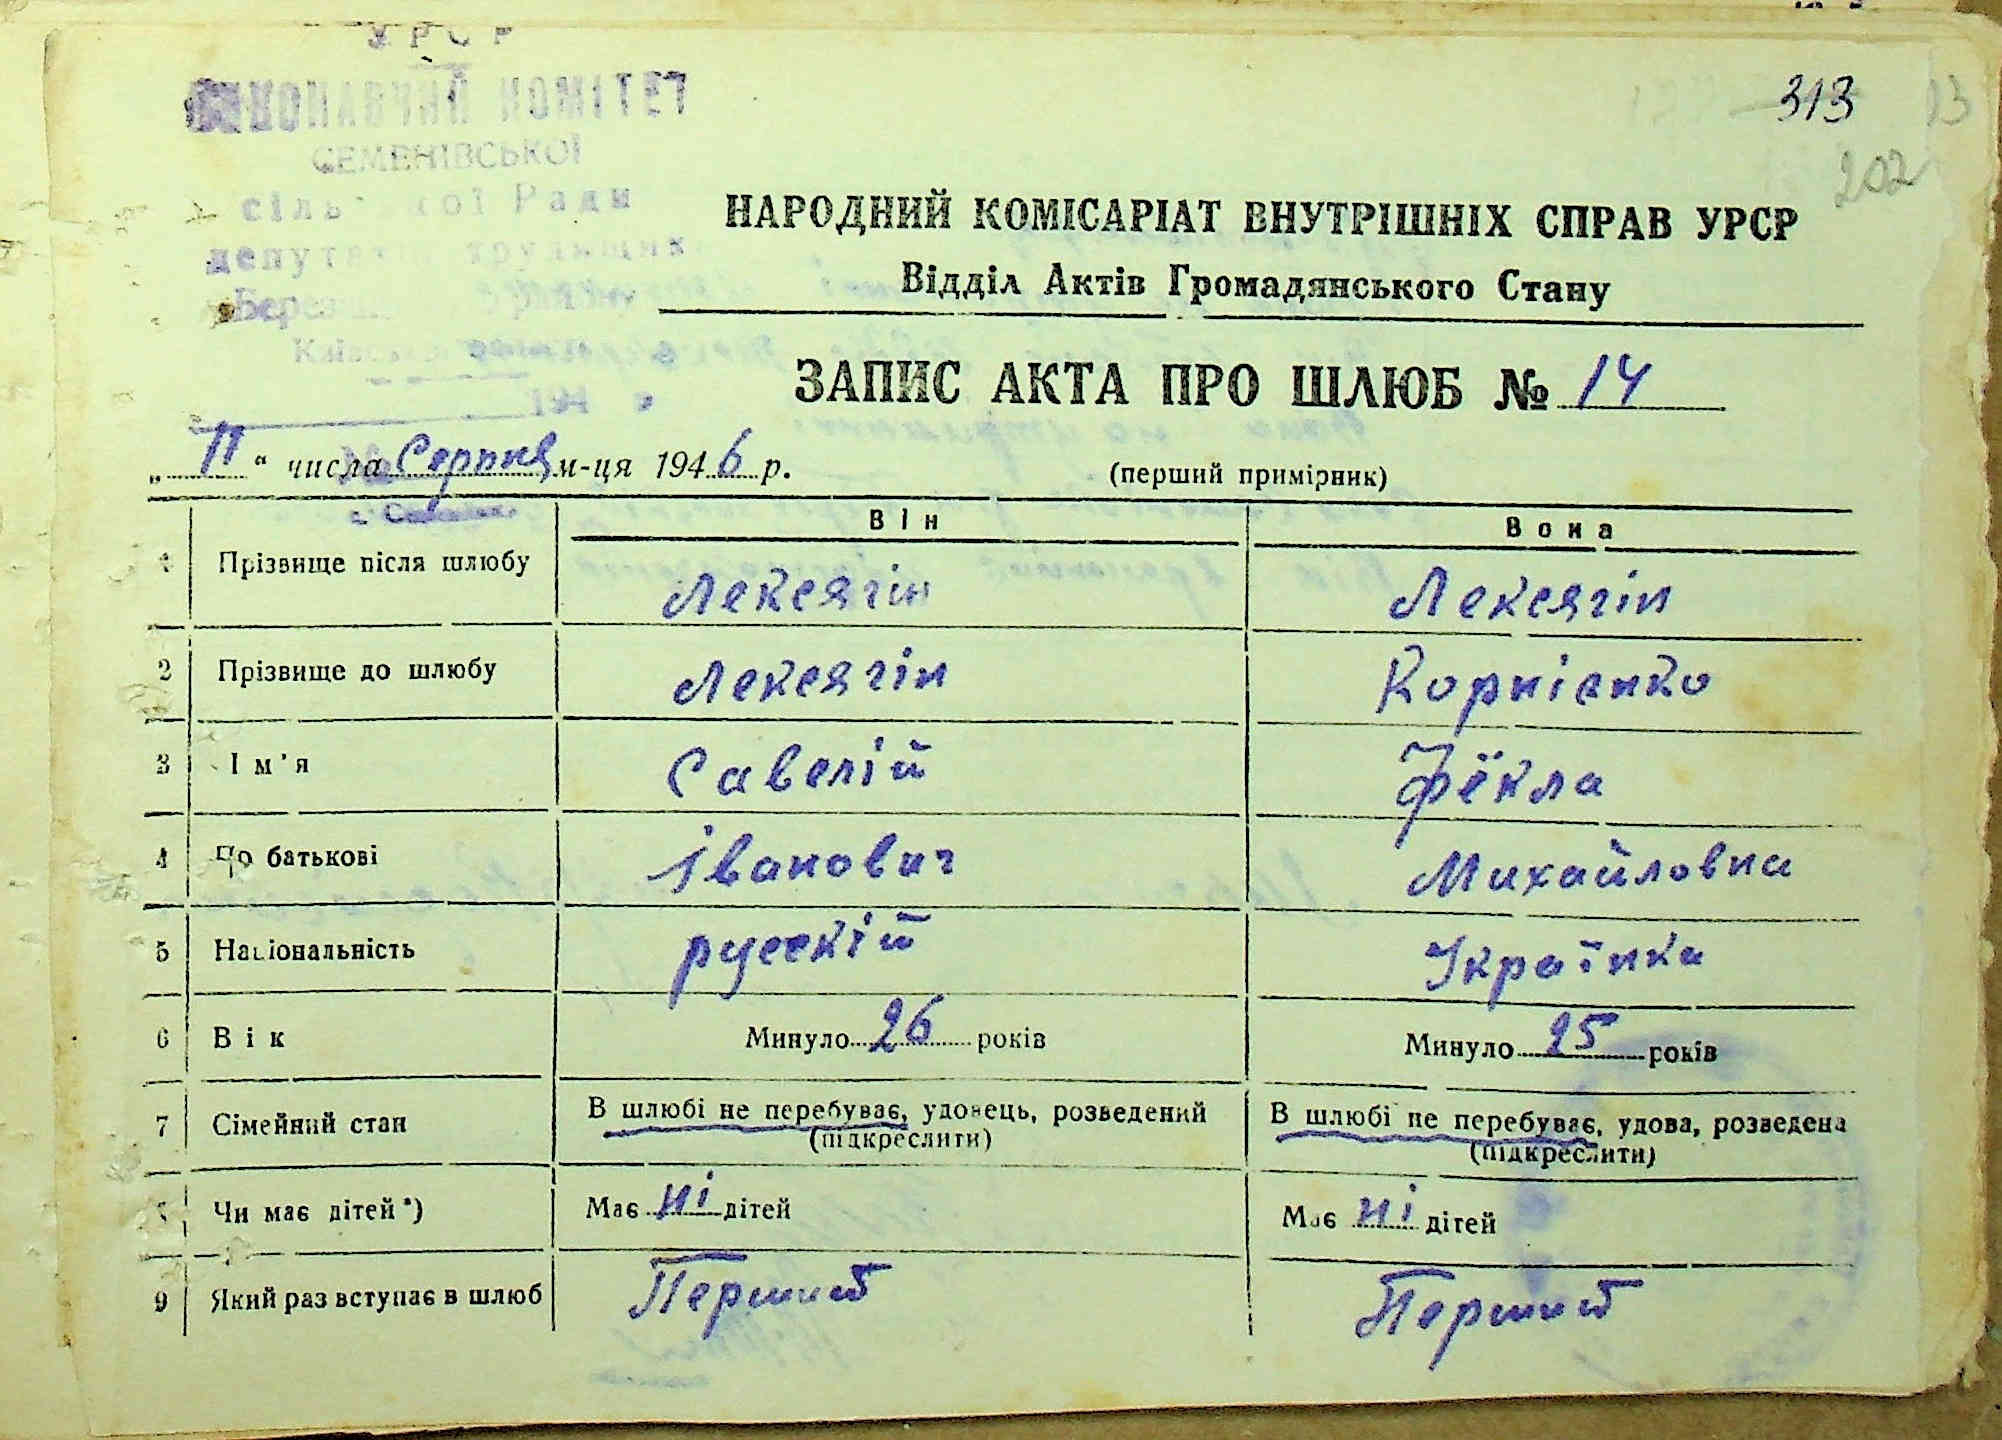 УРСР
ВИКОНАВЧИЙ КОМІТЕТ
СЕМЕНІВСЬКОЇ
сільської Ради
депутатів трудящих
Київської
194 р
313
202
НАРОДНИЙ КОМІСАРІАТ ВНУТРІШНІХ СПРАВ УРСР
Відділ Актів Громадянського Стану
ЗАПИС АКТА ПРО ШЛЮБ № 14
„ 11 “ числа Серпня м-ця 1946 р.
(перший примірник)
Він Вона
1 Прізвище після шлюбу Лексягін Лексягін
2 Прізвище до шлюбу Лексягін Корнієнко
3 Ім'я Савелій Фёкла
4 По батькові Іванович Михайловна
5 Національність русскій Українка
6 Вік Минуло 26 років Минуло 25 років
7 Сімейний стан В шлюбі не перебуває, удовець, розведений (підкреслити) В шлюбі не перебуває, удова, розведена (підкреслити)
Чи має дітей*) Має ні дітей Має ні дітей
9 Який раз вступає в шлюб Перший Перший